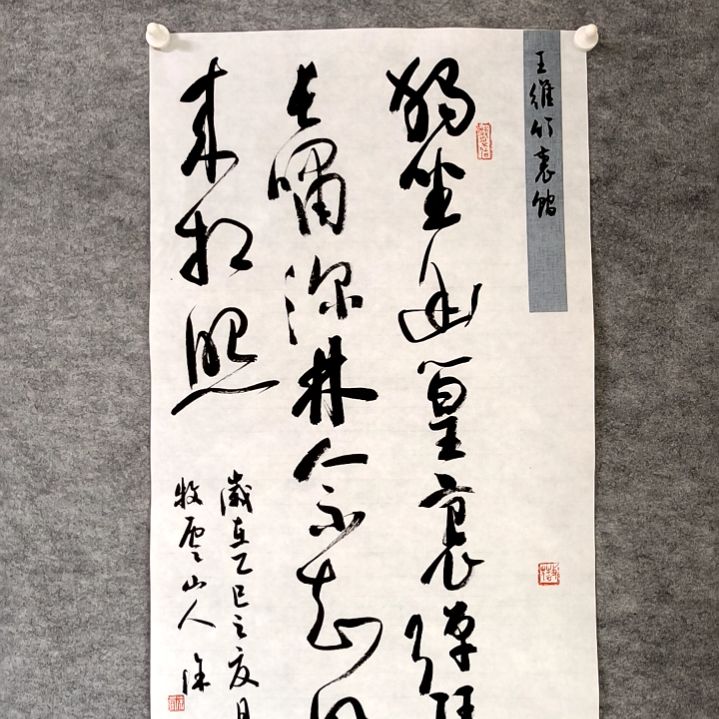 王維竹裏館
獨坐幽篁裏彈
長嘯深林人不知
来相照
歲在乙巳之夏月
牧雲山人 徐